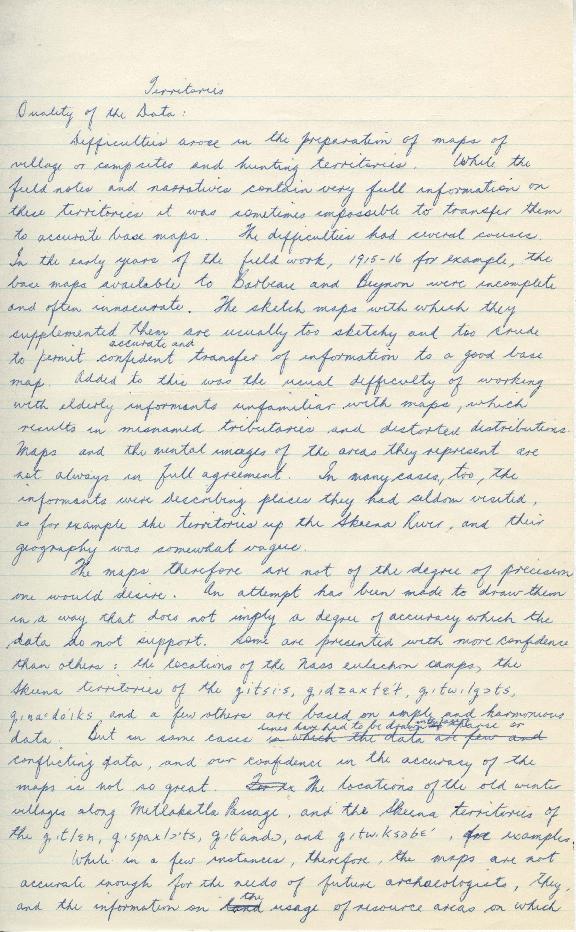 Territories
Quality of the Data:
Difficulties arose in the preparation of maps of
village or camp sites and hunting territories. While the
field notes and narratives contain very full information on
these territories it was sometimes impossible to transfer them
to accurate base maps. The difficulties had several causes.
In the early years of the field work, 1915-16 for example, the
base maps available to Barbeau and Beynon were incomplete
and often inaccurate. The sketch maps with which they
supplemented them are usually too sketchy and too crude
accurate and
to permit confident transfer of information to a good base
map. Added to this was the usual difficulty of working
with elderly informants unfamiliar with maps, which
results in misnamed tributaries and distorted distributions.
Maps and the mental images of the areas they represent are
not always in full agreement. In many cases, too, the
informants were describing places they had seldom visited,
as for example the territories up the Skeena River, and their
geography was somewhat vague.
The maps therefore are not of the degree of precision
one would desire. An attempt has been made to draw them
in a way that does not imply a degree of accuracy which the
data do not support. Some are presented with more confidence
than others: the locations of the Nass eulachon camps, the
Skeena territories of the
and a few others are based on ample and harmonious
lines have had to be drawn sparse or
data. But in some cases in which the data are few and
conflicting data, and our confidence in the accuracy of the
maps is not so great. The locations of the old winter
villages along Metlakatla Passage, and the Skeena territories of
the and for examples.
While in a few instances, therefore, the maps are not
accurate enough for the needs of future archaeologists, they,
the
and the information on land usage of resource areas on which